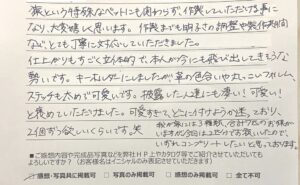 猿という特殊なペットにも関わらず作製していただける事に
なり、大変嬉しく思います。作製までも明るさの調整や製作期間
などとても丁寧に対応していただきました。
仕上がりもすごく立体的で、本人が今にも飛び出してきそうな
勢いです。キーホルダーにしましたが革の色合いや
ステッチも太めで可愛いです。披露した人達にも凄い!可愛い!
と褒めていただけました。可愛すぎて、どこに付けようか迷っており、
2個ずつ欲しいくらいです。笑
我が家には3種類、合計
いますが今回は2匹のでお願いしたので、
いずれコンプリートしたいと思っております。
■ご感想内容や完成品写真などを弊社HP上やカタログ等でご紹介させていただいても
よろしいでしょうか?(お客様名はイニシャルのみ表記させていただきます)
感想・写真共に掲載可
写真のみ掲載可
感想のみ掲載可
全て不可